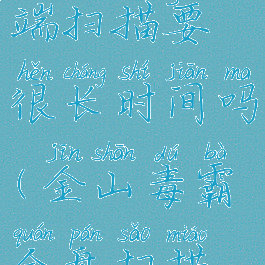 端扫描要
hěn cháng shí jiān ma
很长时间吗
jīn shān dú bà
(金山毒霸
quán pán sǎo miáo
全盘扫描